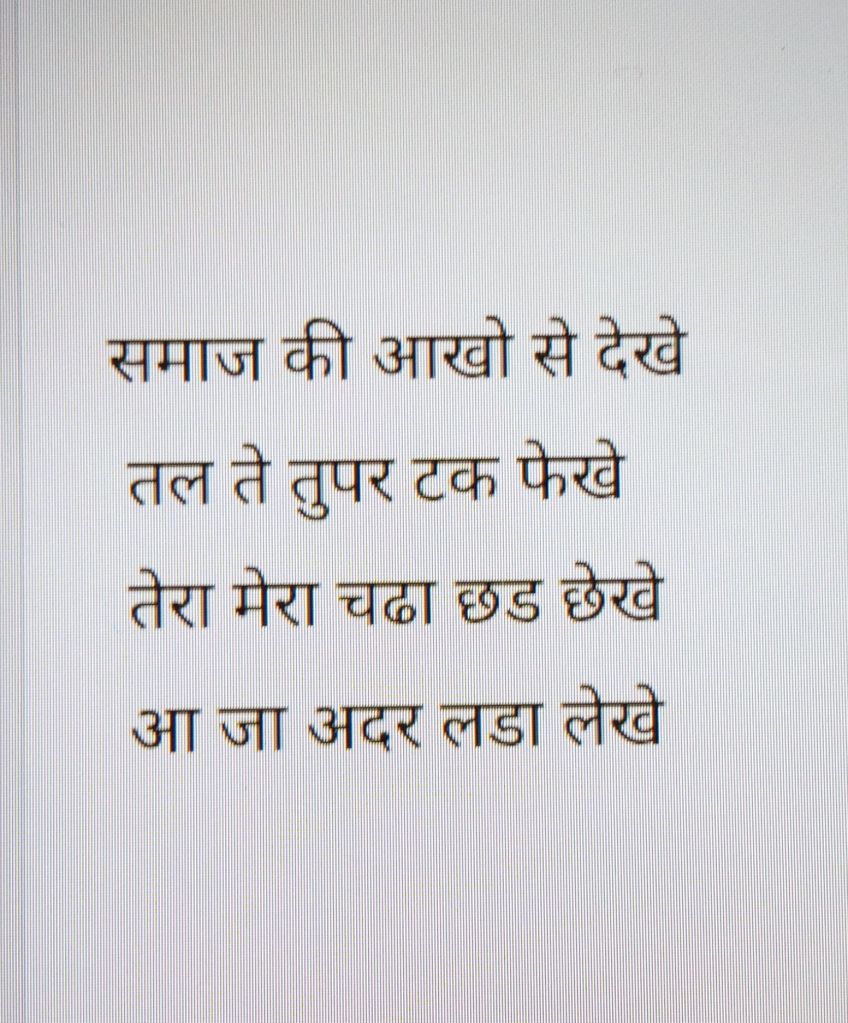 समाज की आखो से देखे
तल ते तुपर टक फेखे
तेरा मेरा चढा छड छेखे
आ जा अदर लडा लेखे